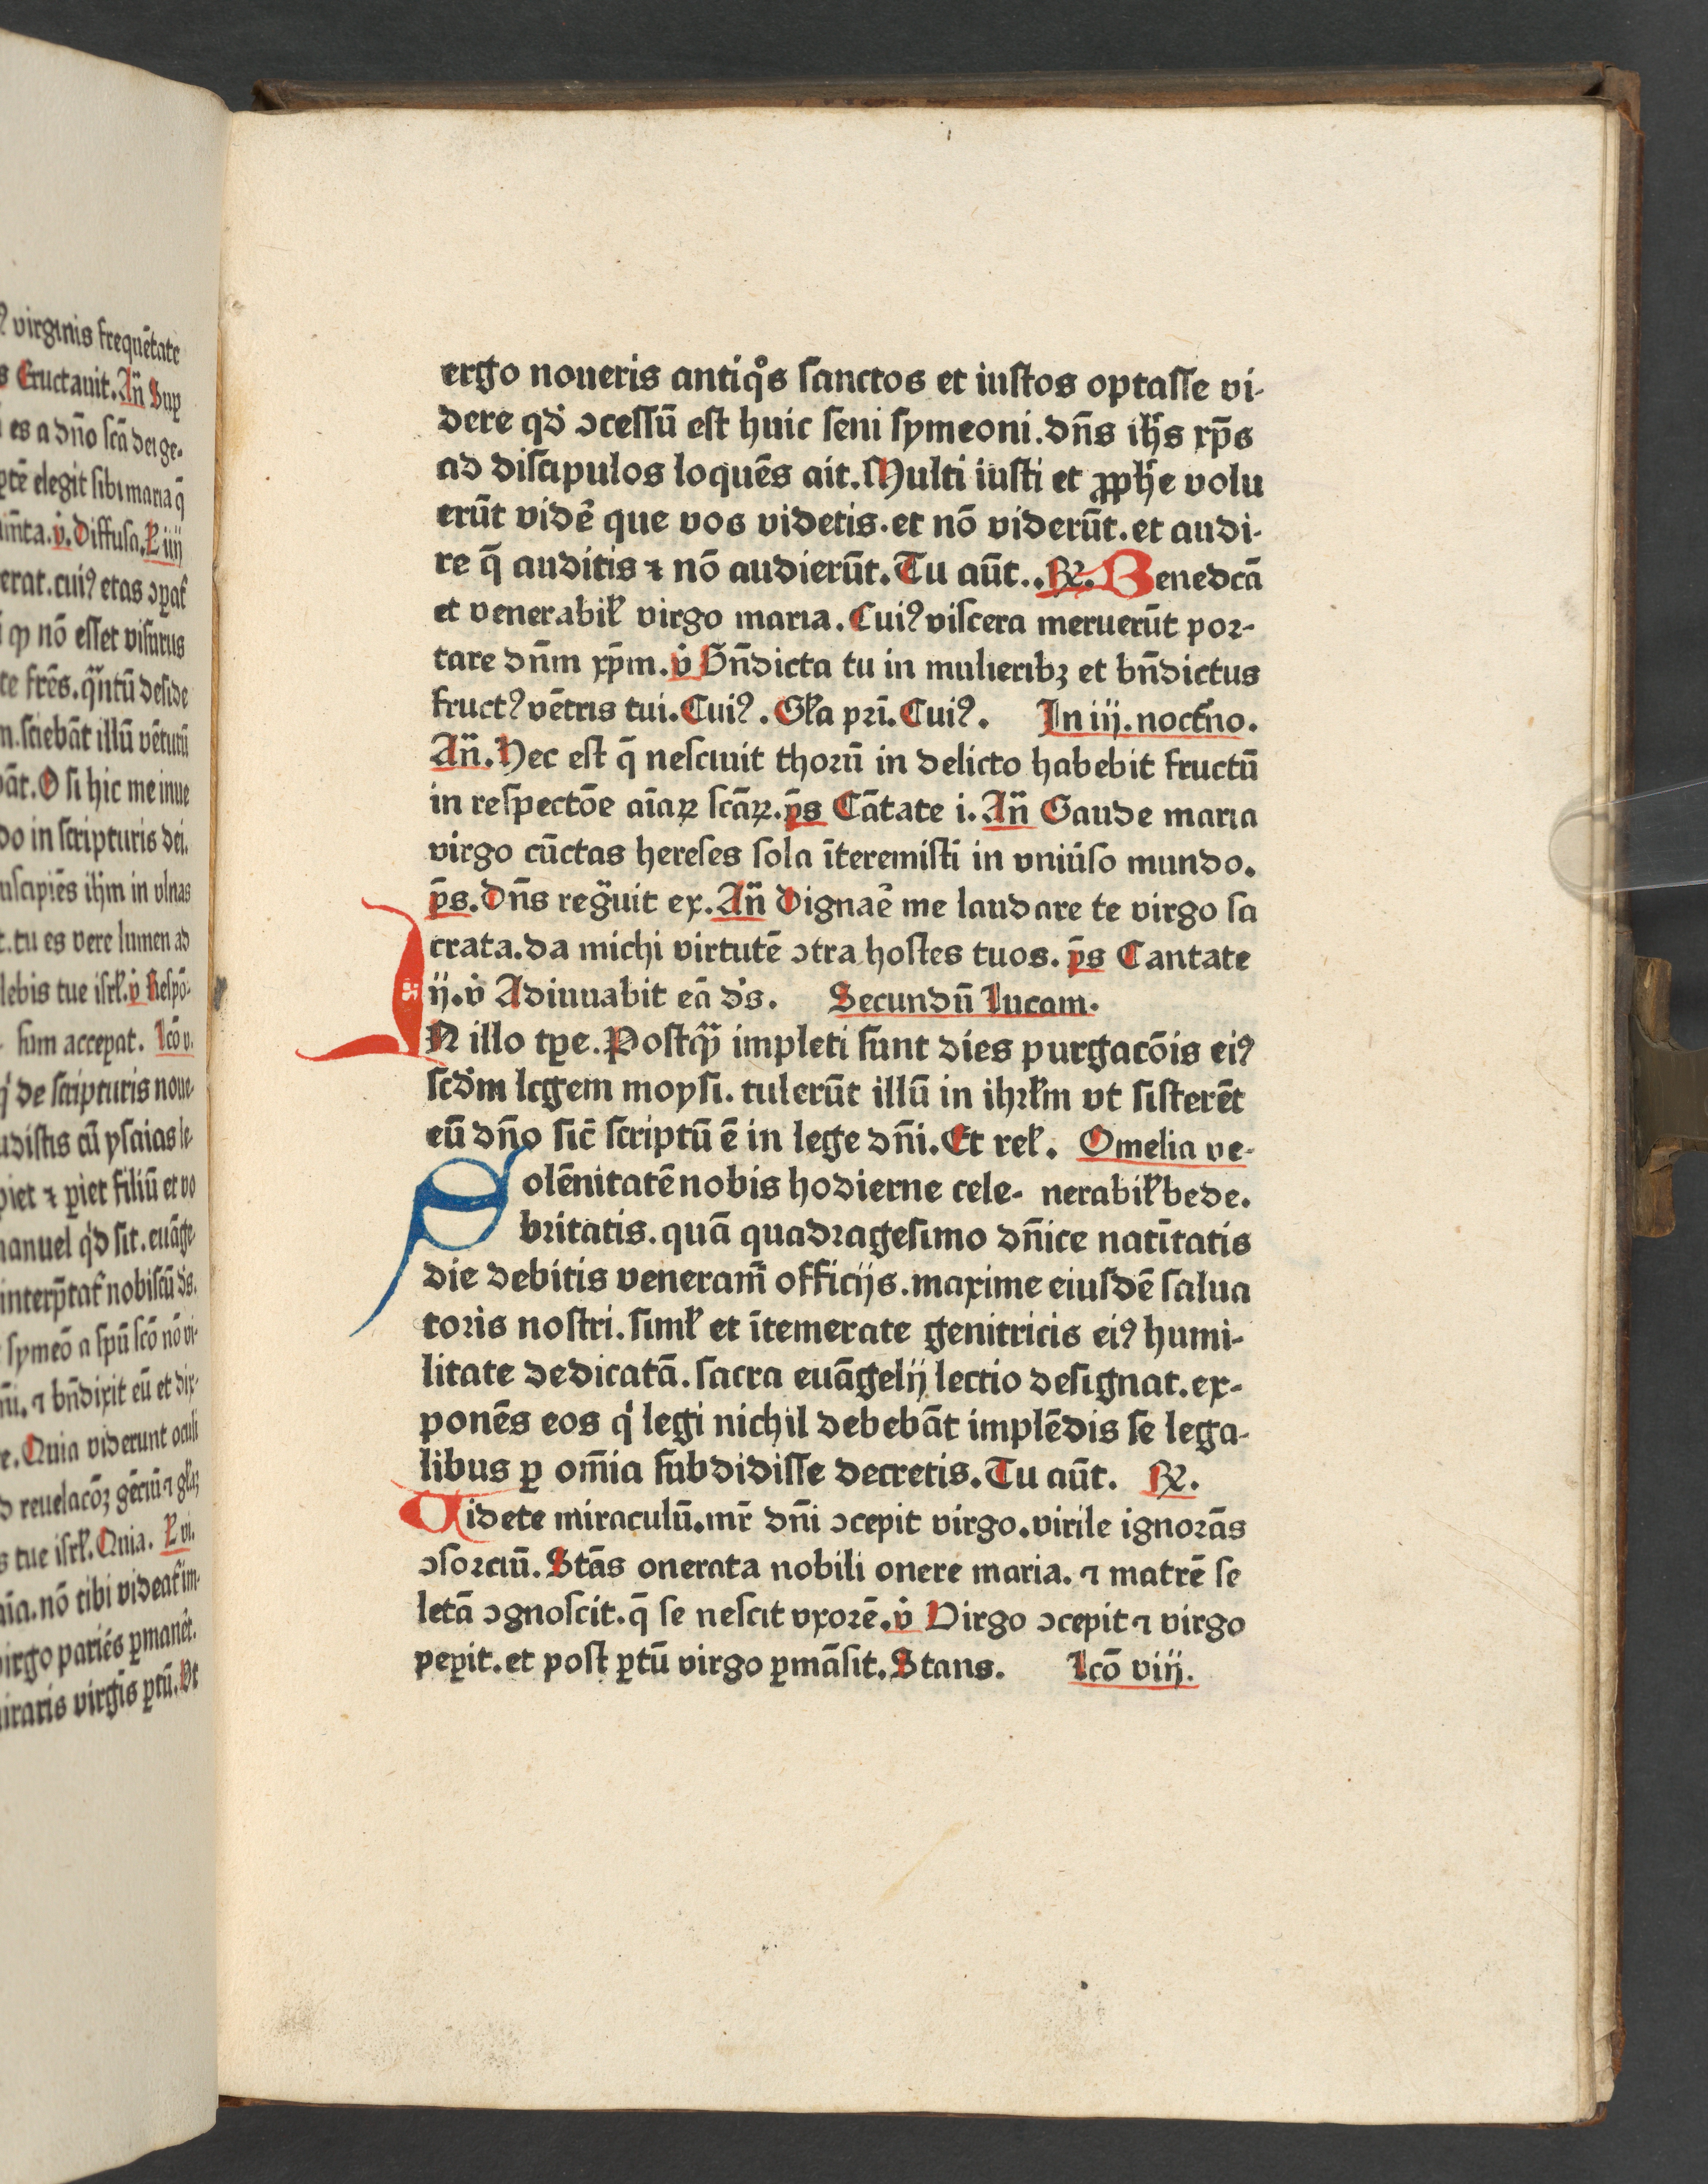 ꝰ virginis frequētate
s Eructauit. Añ Suꝑ
es a dño scā dei ge-
ꝑtē elegit sibi maria q̄
v̇. Diffusa. ł iiij
erat. cuiꝰ etas
nō esset visurus
te frēs. deside
m. sciebāt illū vēturū
bāt. O si hic me inue
do in scripturis dei.
uscipiēs ihm̄ in vlnas
t. tu es vere lumen ad
lebis tue isrł. v̇ Respō-
sum acceꝑat. lcō v.
de scripturis noue-
udistis cū ysaias le-
piet ⁊ ꝑiet filiū et vo
anuel qd̛ sit. euāge-
interp̄tat᷑ nobiscū ds̛.
symeō a spū scō nō vi-
ni. ⁊ bn̄dixit eū et dix-
re. Quia viderunt oculi
d reuelacōꝫ gēciū ⁊ głaꝫ
s tue isrł. Quia. ł vi.
nō tibi videat᷑ im-
virgo pariēs ꝑmanēt.
iraris virgīs ꝑtū. Vt
ergo noueris antiqͦs sanctos et iustos optasse vi-
dere qd̛ ↄcessū est huic seni symeoni. dn̄s ih̄s xp̄s
ad discipulos loquēs ait. Multi iusti et ꝓph̄e volu
erūt vidē que vos videtis. et nō viderūt. et audi-
re q̄ auditis ⁊ nō audierūt. Tu aūt.. ℟. Benedcā
et venerabił virgo maria. Cuiꝰ viscera meruerūt por-
tare dn̄m xp̄m. v̇ Bn̄dicta tu in mulieribꝫ et bn̄dictus
fructꝰ vētris tui. Cuiꝰ. Gła pri. Cuiꝰ. In iij. noct̄no.
Añ. Hec est q̄ nesciuit thorū in delicto habebit fructū
in respectōe aīaꝝ scāꝝ. p̄s Cātate i. Añ Gaude maria
virgo cūctas hereses sola īteremisti in vniūso mundo.
p̄s. Dn̄s regͣuit ex. Añ Dignaē me laudare te virgo sa
crata. da michi virtutē ↄtra hostes tuos. p̄s Cantate
ij. v̇ Adiuuabit eā ds̛. Secundū lucam.
IN illo tꝑe. Postqͣꝫ impleti sunt dies purgacōis eiꝰ
scd̛m legem moysi. tulerūt illū in ihrłm vt sisterēt
eū dn̄o sic̄ scriptū ē in lege dn̄i. Et reł. Omelia ve-
Solēnitatē nobis hodierne cele- nerabił bede.
britatis. quā quadragesimo dn̄ice natītatis
die debitis veneram̄ officijs. maxime eiusdē salua
toris nostri. simł et ītemerate genitricis eiꝰ humi-
litate dedicatā. sacra euāgelij lectio designat. ex-
ponēs eos qͥ legi nichil debebāt implēdis se lega-
libus ꝑ om̄ia subdidisse decretis. Tu aūt. ℟.
Videte miraculū. mr̄ dn̄i ↄcepit virgo. virile ignorās
ↄsorciū. Stās onerata nobili onere maria. ⁊ matrē se
letā ↄgnoscit. q̄ se nescit vxorē. v̇ Virgo ↄcepit ⁊ virgo
peꝑit. et post ꝑtū virgo ꝑmāsit. Stans. lcō viij.